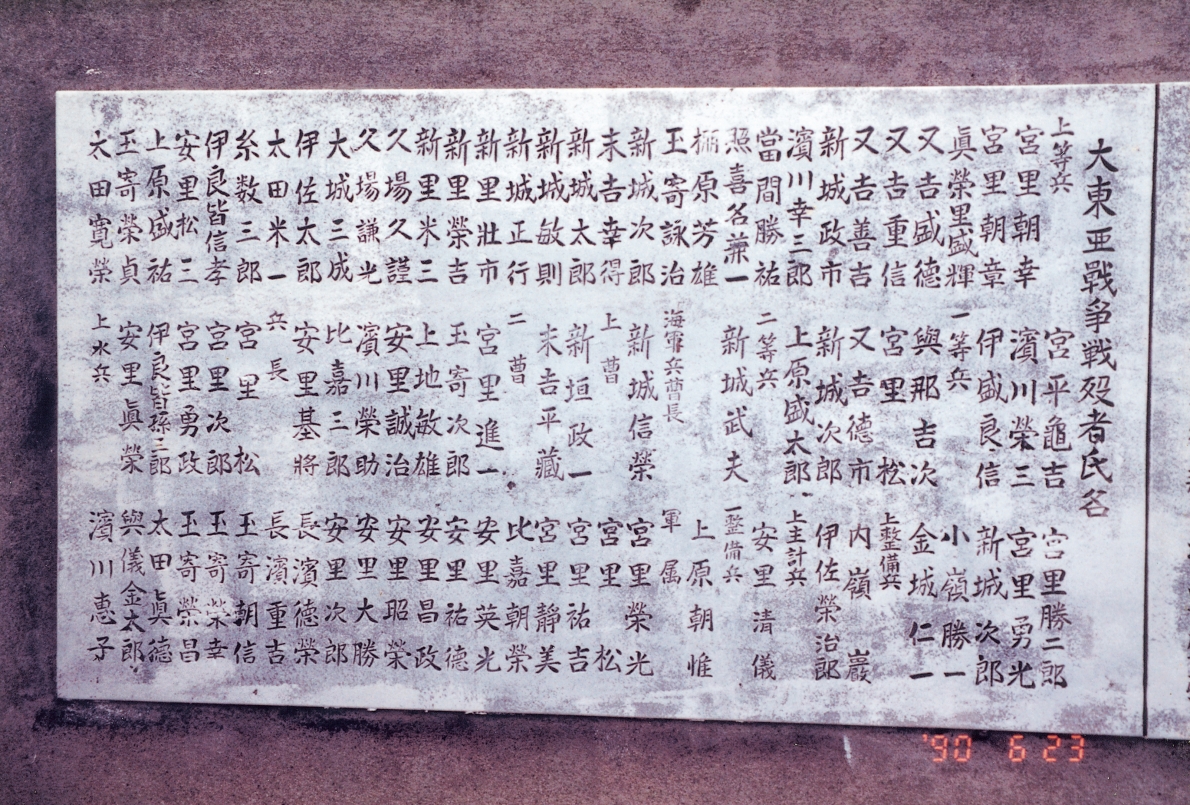 大東亜戰争戦殁者氏名
上等兵
宮里朝幸
宮里朝章
眞榮里盛輝
又吉盛德
又吉重信
又吉善吉
新城政市
濱川幸三郎
當間勝祐
照喜名兼一
原芳雄
玉寄詠治
新城次郎
末吉幸得
新城太郎
新城敏則
新城正行
新里壯市
新里榮吉
新里米三
久場久謹
久場謙光
大城三成
伊佐太郎
太田米一
糸数三郎
伊良皆信孝
安里松三
上原盛祐
玉寄榮貞
太田寛榮
宮平龜吉
濱川榮三
伊盛良信
一等兵
與那吉次
宮里松
又吉德市
新城次郎
上原盛太郎
二等兵
新城武夫
海軍兵曹長
新城信榮
上曹
新垣政一
末吉平藏
二曹
宮里進一
玉寄次郎
上地敏雄
安里誠治
濱川榮助
比嘉三郎
安里基將
兵長
宮里松
宮里次郎
宮里勇政
伊良皆孫三郎
安里眞榮
上水兵
宮里勝二郎
宮里勇光
新城次郎
小嶺勝一
金城仁一
上整備兵
内嶺巖
伊佐榮治郎
上主計兵
安里清儀
一整備兵
上原朝惟
軍属
宮里榮光
宮里松
宮里祐吉
宮里靜美
比嘉朝榮
安里英光
安里祐德
安里昌政
安里昭榮
安里大勝
安里次郎
長濱德榮
長濱重吉
玉寄朝信
玉寄榮幸
玉寄榮昌
太田眞德
與儀金太郎
濱川惠子
'90 6 23